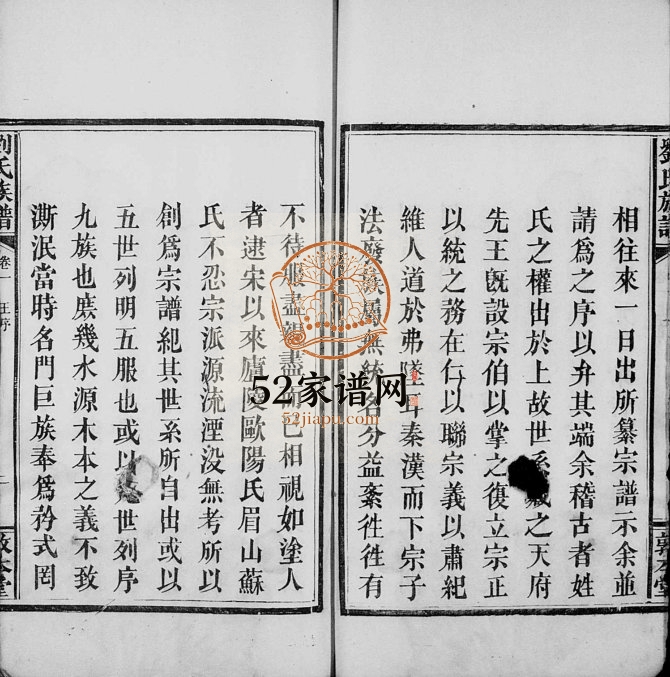 劉氏族譜
敦本堂
相往來一日出所纂宗譜示余並
請爲之序以弁其端余稽古者姓
氏之權出於上故世系藏之天府
先王旣設宗伯以掌之復立宗正
以統之務在仁以聯宗義以肅紀
維人道於弗墜 自秦漢而下宗子
法廢族屬無統名分益紊徃徃有
不待服盡親盡而已相視如塗人
者逮宋以來廬陵歐陽氏眉山蘇
氏不忍宗派源流湮没無考所以
創爲宗譜紀其世系所自出或以
五世列明五服也或以 世列序
九族也庶幾水源木本之義不致
澌泯當時名門巨族奉爲矜式罔
劉氏族譜
卷一
王序
一
敦本堂
52家谱网
52jiapu.com